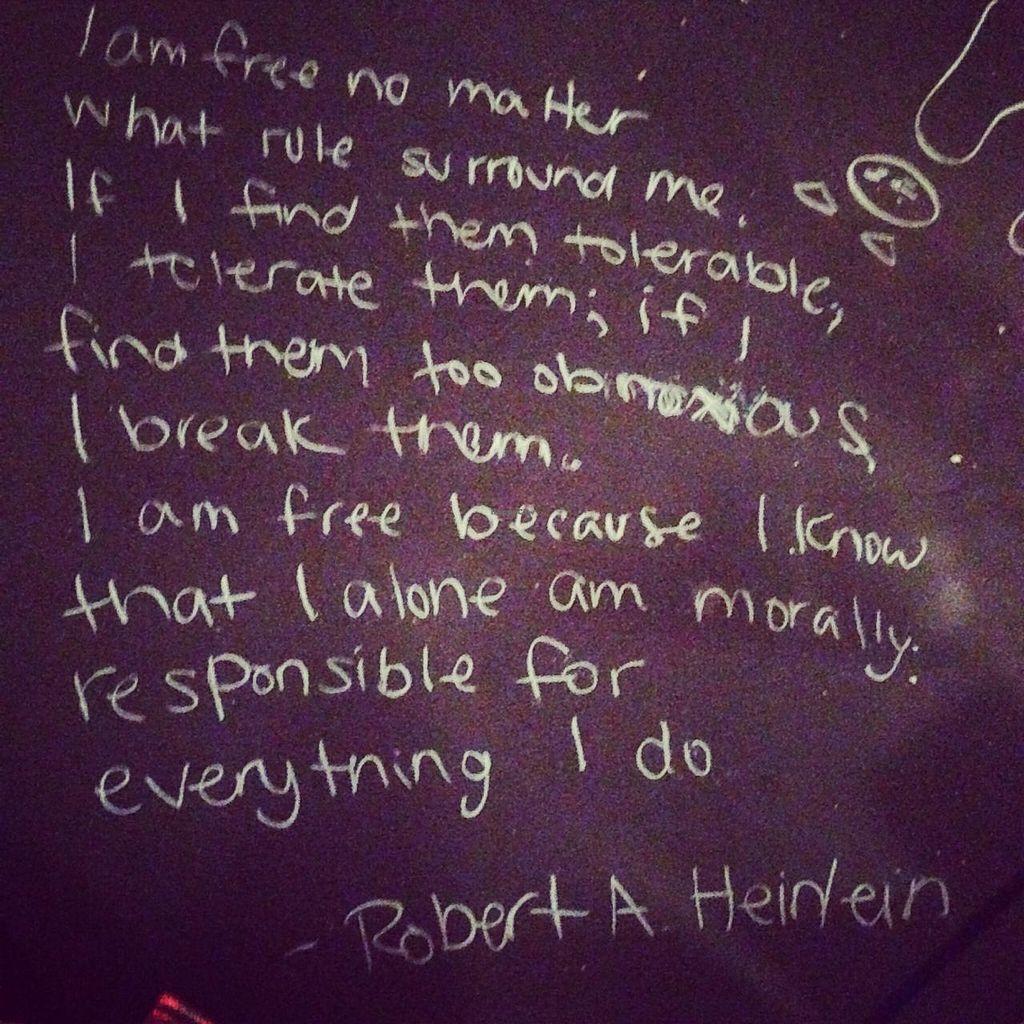 I am free no matter
what rule surround me.
If I find them tolerable,
I tolerate them; if I
find them too obnoxious,
I break them.
I am free because I know
that I alone am morally
responsible for
everything I do
- Robert A. Heinlein